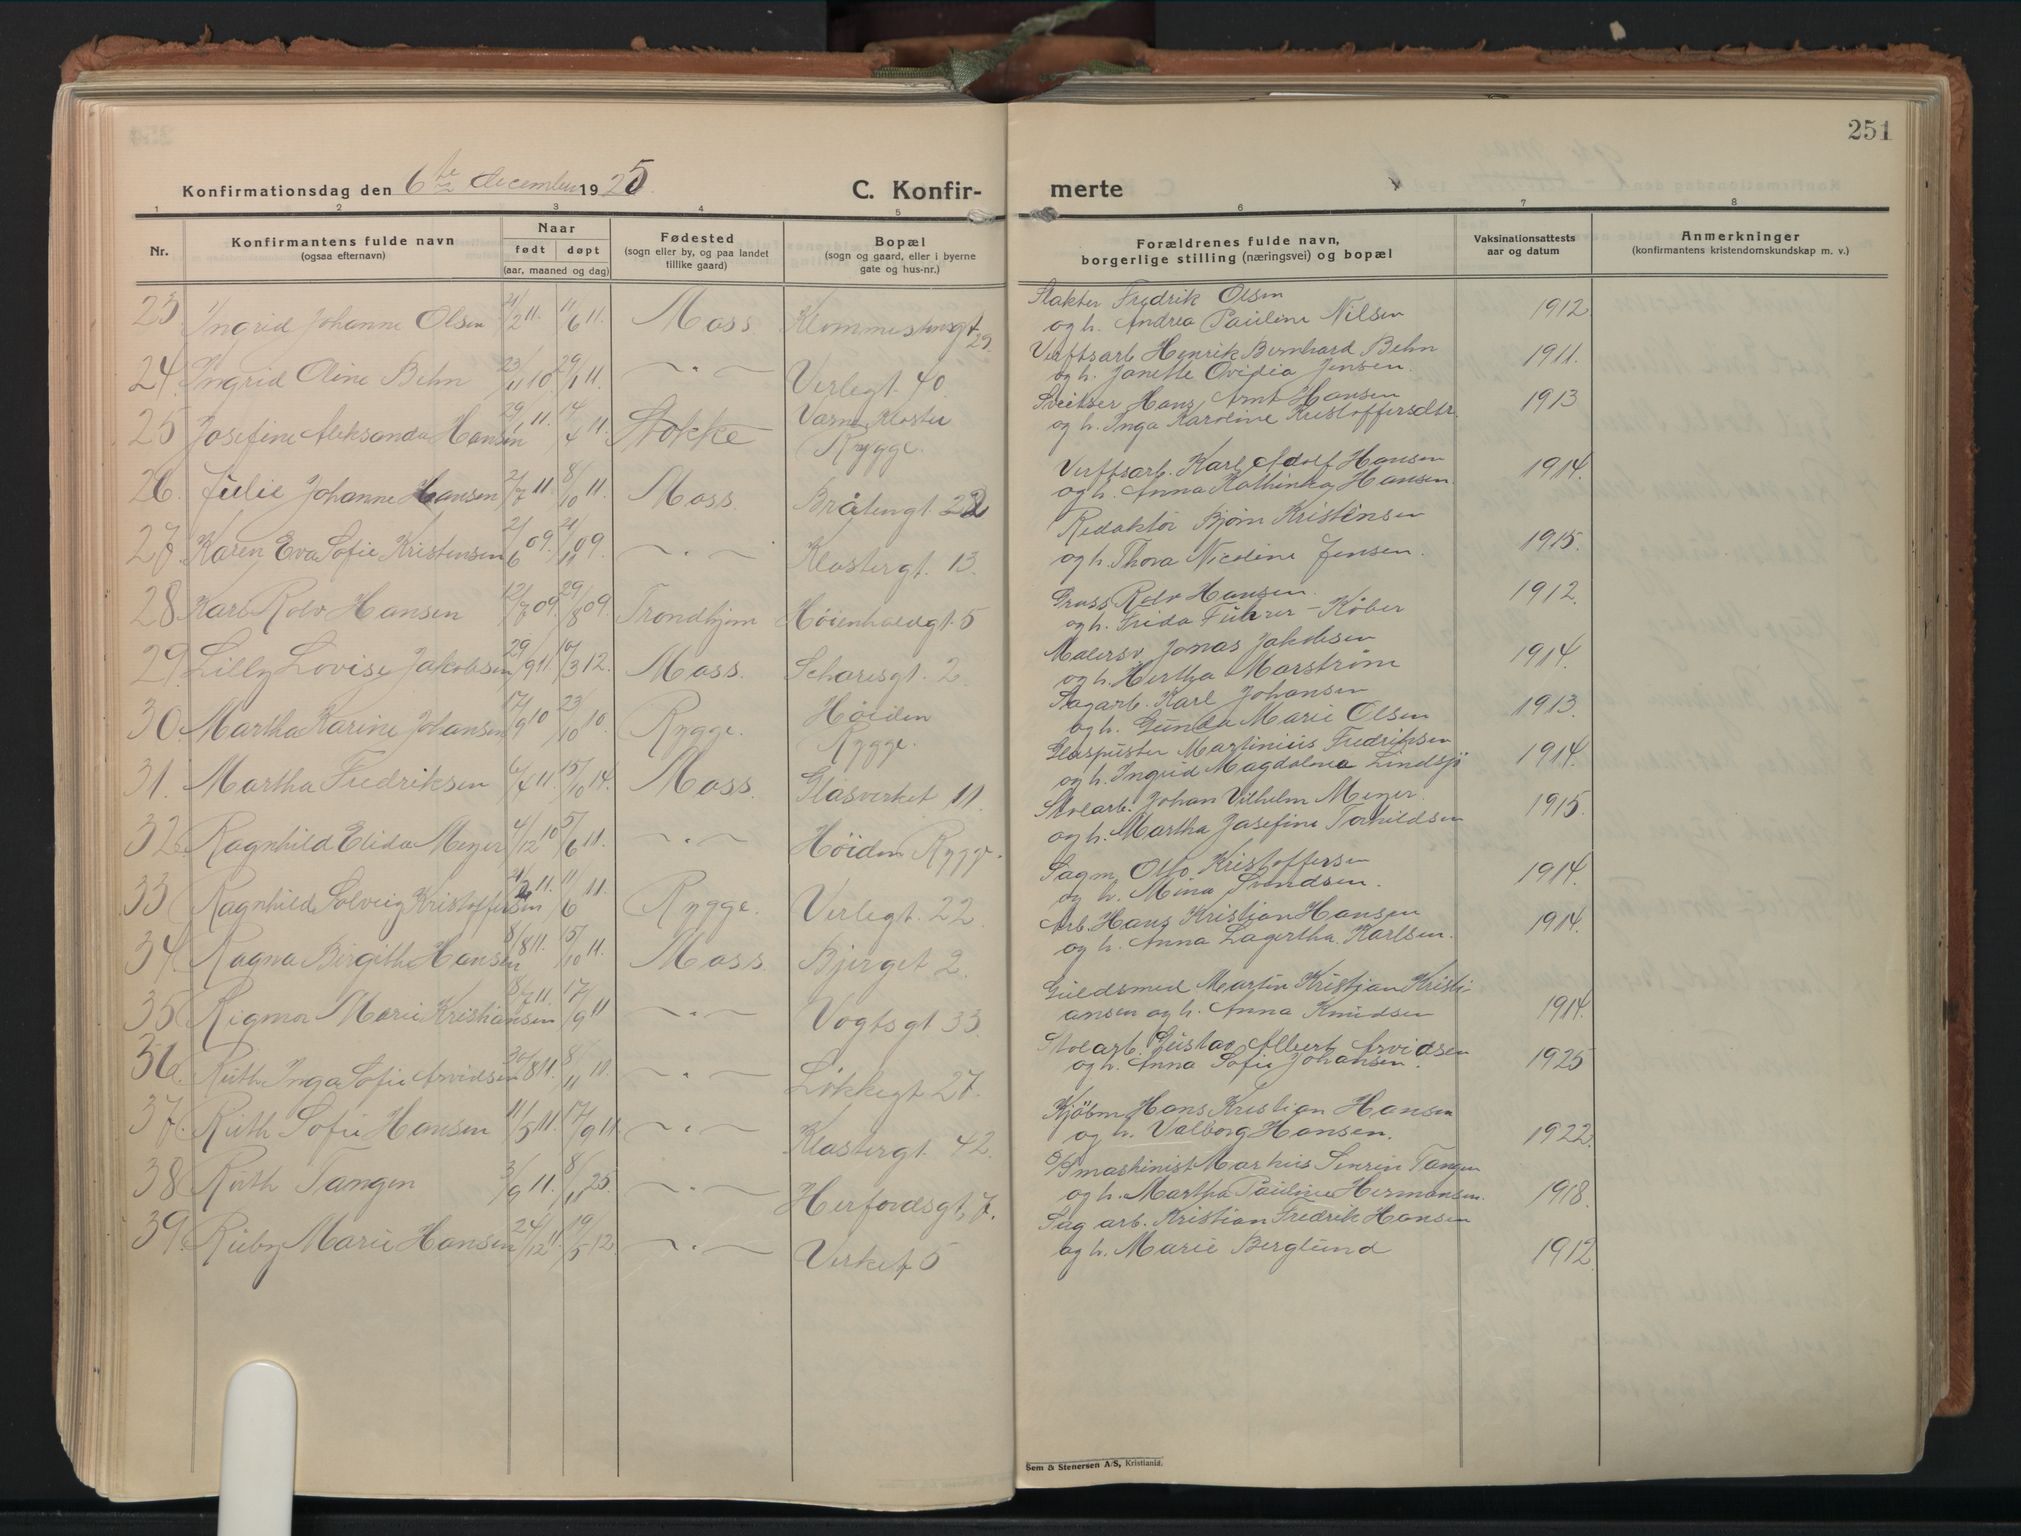 251
Konfirmationsdag den 6te december 1925.
C. Konfir-
merte
1 2 3 4 5 6 7 8
Nr.
Konfirmantens fulde navn
(ogsaa efternavn)
Naar
født døpt
(aar, maaned og dag)
Fødested
(sogn eller by, og paa landet
tillike gaard)
Bopæl
(sogn og gaard, eller i byerne
gate og hus-nr.)
Forældrenes fulde navn,
borgerlige stilling (næringsvei) og bopæl
Vaksinationsattests
aar og datum
Anmerkninger
(konfirmantens kristendomskundskap m. v.)
23 Ingrid Johanne Olsen 21/2 11. 11/6 11. Moss. 29
Slakter Fredrik Olsen
og h. Andrea Pauline Nilsen 1912
24. Ingrid Oline Behn 23/11 10 29/1 11. -"- Verlegt. 40.
Verftsarb. Henrik Bernhard Behn
og h. Janette Ovidia Jensen. 1911.
25 Josefine Aleksanda Hansen 29/1 11. 14/4 11. Stokke Varne Kloster
Rygge.
Sveitser Hans Arnt Hansen
og h. Inga Karoline Kristoffersdtr. 1913
26. Julie Johanne Hansen 2/7 11. 8/10 11. Moss. Bråtengt. 22
Verftsarb. Karl Adolf Hansen
og h. Anna Kathinka Hansen. 1914.
27. Karen Eva Sofie Kristensen 2/6 09. 21/11 09. -"- Klostergt. 13.
Redaktør Bjørn Kristensen
og h. Thora Nicoline Jensen. 1915.
28 Karl Rolv Hansen 12/7 09. 29/8 09. Trondhjem Høienhaldgt. 5
Gross. Rolv Hansen.
og h. Frida Führer-Köber 1912.
29. Lilly Lovise Jakobsen 29/9 11. 10/3 12. Moss. 2.
Malersv. Jonas Jakobsen
og h. Hertha Marstrøm 1914.
30. Martha Karine Johansen 17/9 10 23/10 10 Rygge. Høiden
Rygge.
Sagarb. Karl Johansen
og h. Gunda Marie Olsen 1913.
31. Martha Fredriksen 6/4 11. 15/10 14. Moss. Glasverket 11.
Glaspuster Martinius Fredriksen
og h. Ingrid Magdalena Lindsjö 1914.
32. Ragnhild Elida Meyer 4/12 10 5/6 11. -"- Høiden Rygge.
Stolarb. Johan Vilhelm Meyer.
og h. Martha Josefine Torkildsen 1915.
33 Ragnhild Solveig Kristoffersen 11. 11/6 11. Rygge. Verlegt. 22
Sagm. Otto Kristoffersen
og h. Mina Svendsen. 1914.
34. Ragna Birgithe Hansen 8/8 11. 15/10 11. Moss. Bjerget 2.
Arb. Hans Kristian Hansen
og h. Anna Lagertha Karlsen. 1914.
35. Rigmor Marie Kristiansen 8/7 11. 17/9 11 -"- Vogtsgt. 33.
Guldsmed Martin Kristjan Kristi-
ansen og h. Anna Knudsen 1914.
36. Ruth Inga Sofie Arvidsen 30/8 11. 8/11 11. -"- Løkkegt. 27.
Stolarb. Gustav Albert Arvidsen
og h. Anna Sofie Johansen. 1925
37. Ruth Sofie Hansen 11/5 11. 17/9 11. -"- Klostergt. 42.
Kjöbm. Hans Kristian Hansen
og h. Valborg Hansen. 1922.
38 Ruth Tangen 3/9 11. 8/11 25. -"- Herfordsgt. 7.
D/Smaskinist Markus Senrin Tangen
og h. Martha Pauline Hermansen. 1918.
39. Ruby Marie Hansen 24/12 11. 19/5 12. -"- Verket 5
Sag arb. Kristian Fredrik Hansen
og h. Marie Berglund 1912.
Sem & Stenersen A/S, Kristiania.